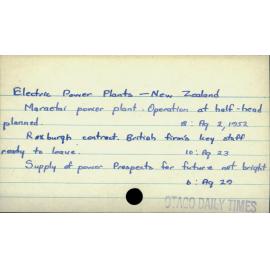 Electric Power Plants — New Zealand
Maraetai power plant. Operation at half-head
planned. 8: Ag 2, 1952
Roxburgh contract. British firm's key staff
ready to leave. 10: Ag 23
Supply of power Prospects for future not bright
6: Ag 29
OTAGO DAILY TIMES